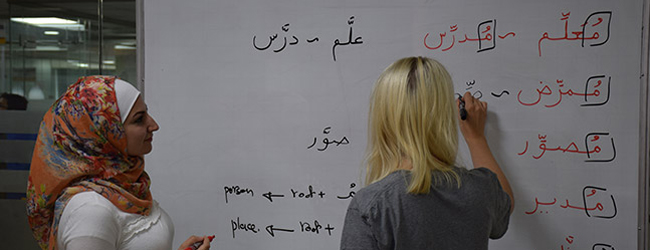 مُعَلِّم ~ مُدَرِّس علَّم ~ درَّس
مُمرِّض ~
مُصوِّر صوَّر
مُدير person ← root + مُ
place ← root +